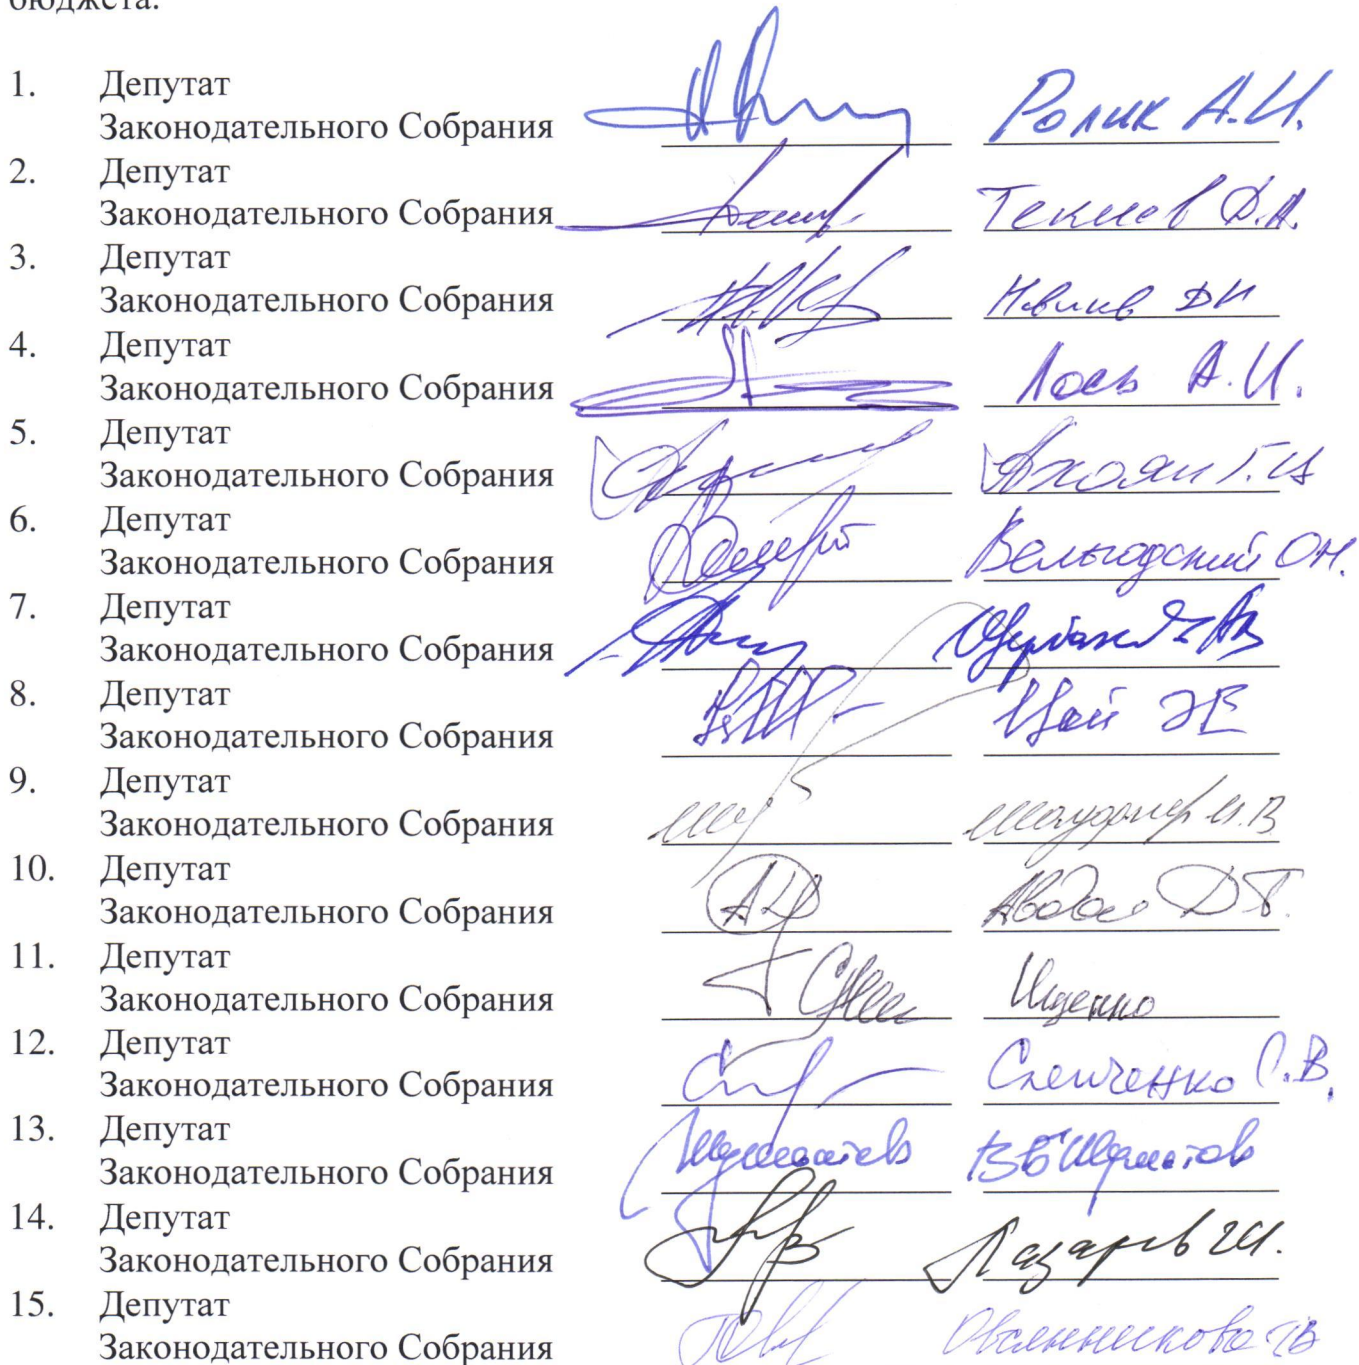 бюджета.
1. Депутат
Законодательного Собрания Ролик А.И.
2. Депутат
Законодательного Собрания Текиев Д.А.
3. Депутат
Законодательного Собрания
4. Депутат
Законодательного Собрания Лось А.И.
5. Депутат
Законодательного Собрания Ахоян Г.Ц
6. Депутат
Законодательного Собрания
7. Депутат
Законодательного Собрания
8. Депутат
Законодательного Собрания Цой ЭЕ
9. Депутат
Законодательного Собрания И.В
10. Депутат
Законодательного Собрания Авдои Д.Т.
11. Депутат
Законодательного Собрания Ищенко
12. Депутат
Законодательного Собрания Слепченко С.В.
13. Депутат
Законодательного Собрания ВБ Шуматов
14. Депутат
Законодательного Собрания Лазарев ГИ.
15. Депутат
Законодательного Собрания Овсянникова ТВ